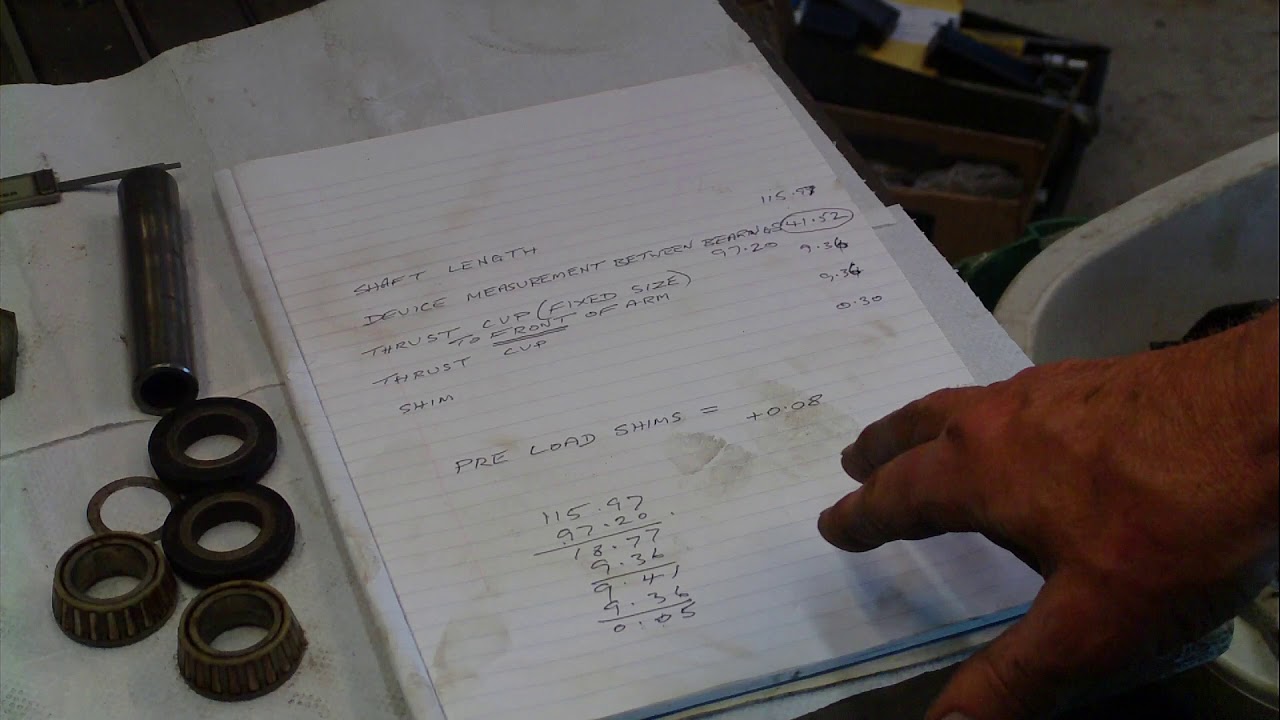 115.97
SHAFT LENGTH
DEVICE MEASUREMENT BETWEEN BEARINGS 41.52
97.20
THRUST CUP (FIXED SIZE) 9.36
THRUST TO FRONT OF ARM 9.36
CUP
SHIM 0.30
PRE LOAD SHIMS = +0.08
115.97
97.20
18.77
9.36
9.41
9.36
0.05